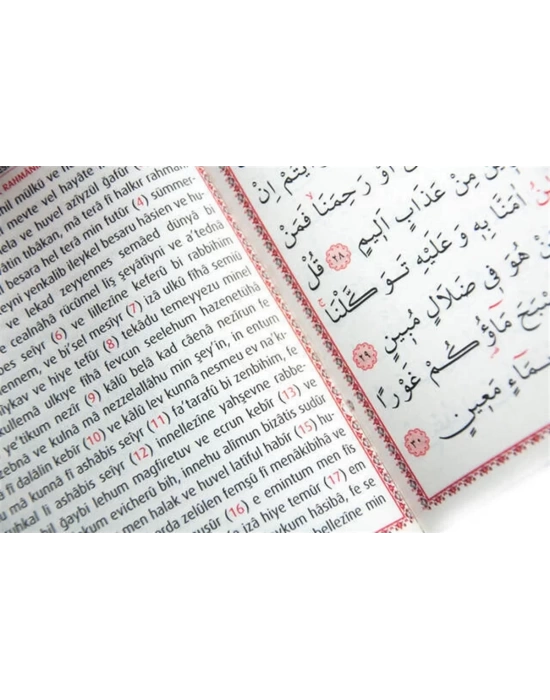 RAHMAN
mil mülkü ve
l mevte vel hayâte
ela ve huvel azîyzül gafûr
vâtin tıbâkan, mâ terâ fî halkır rahmân
l besara hel terâ min futûr (4) sümmer-
teyni yenkalib ileykel besaru hâsien ve hu-
ve lekad zeyyennes semâed dünyâ bi
ve cealnâhâ rücûmel liş şeyâtîyni ve a'tednâ
bes seîyr (6) ve lillezîne keferû bi rabbihim
ennem, ve bi'sel mesîyr (7) izâ ulkû fîhâ semiû
ve hiye tefûr (8) tekâdu temeyyezu minel
kullemâ ulkıye fîhâ fevcun seelehum hazenetühâ
e'tikum nezîr (9) kâlû belâ kad câenâ nezîrun fe
zebnâ ve kulnâ mâ nezzelallâhu min şey'in, in entum
â fî dalâlin kebîr (10) ve kâlû lev kunnâ nesmeu ev na'k-
mâ kunnâ fî ashâbis seîyr (11) fa'terafû bi zenbihim, fe
uhkal li ashâbis seîyr (12) innellezîne yahşevne rabbe-
bil ğaybi lehum mağfiretuv ve ecrun kebîr (13) ve
kum evicherû bih, innehu alîmun bizâtis sudûr
men halak ve huvel latîful habîr (15) hu-
arda zelûlen femşû fî menâkibihâ ve
nuşûr (16) e emintum men fis
izâ hiye temûr (17) em
aykum hâsibâ, fe se
bellezîne min
ايتم ان
او رحمنا فمن
من عذاب اليم ٢٨ قل
امنا به وعليه توكلنا
من هو في ضلال مبين ٢٩
اصبح ماؤكم غورا
معين ٣٠